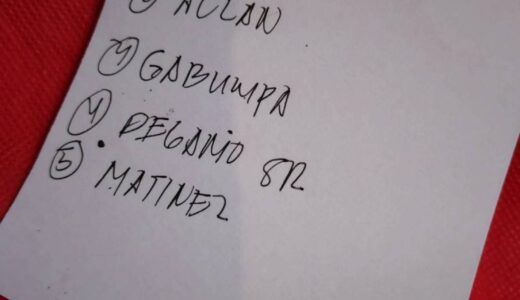 ACLAN
4 GABUMPA
4 DEGAMO SR
5 MATINEZ